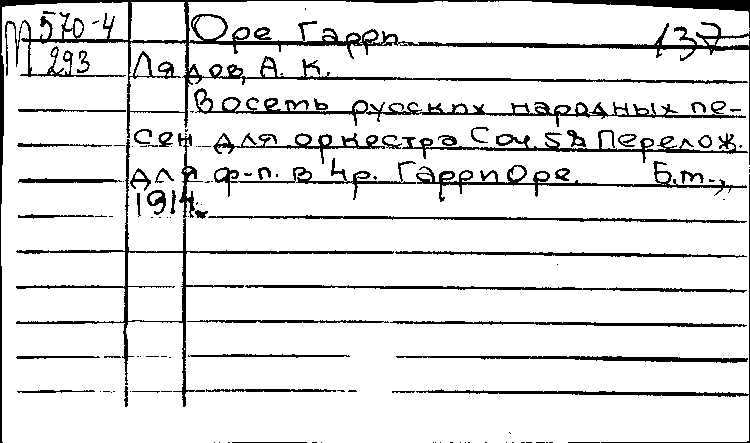 М 570-4 Оре, Гарри 137
293 Лядов, А. К.
Восемь русских народных пе-
сен для оркестра Соч. 58 Перелож.
для ф-п. в 4 р. Гарри Оре. Б.м.,
1914.